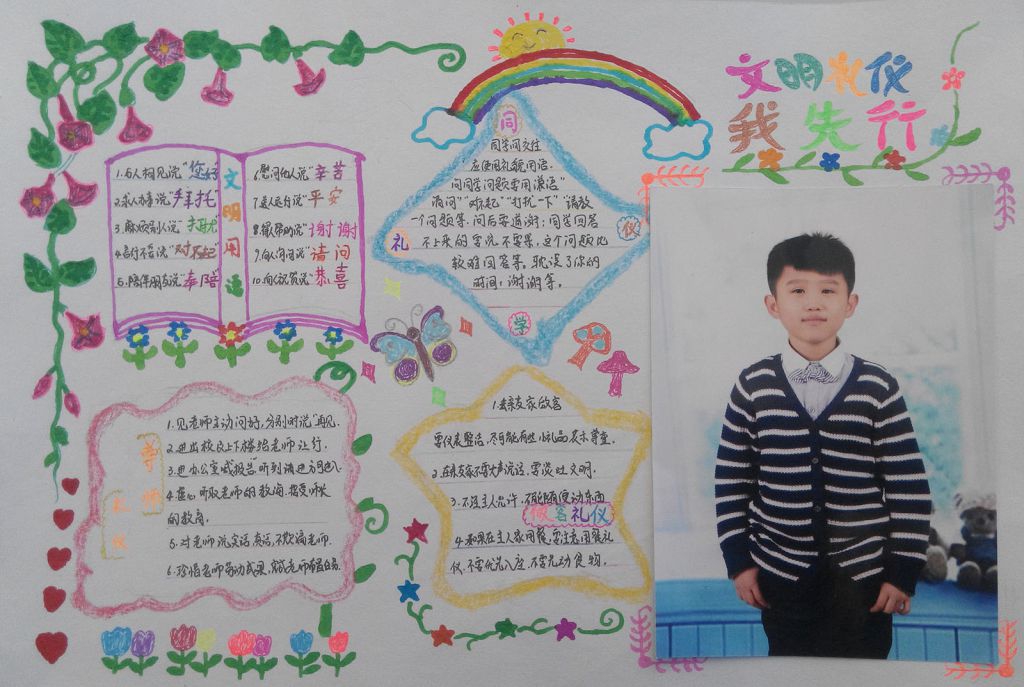 文明礼仪
我先行
文明用语
1.与人相见说"您好"
2.求人办事说"拜托"
3.麻烦别人说"打扰"
4.言行不妥说"对不起"
5.陪伴朋友说"奉陪"
6.慰问他人说"辛苦"
7.送人远行说"平安"
8.得人帮助说"谢谢"
9.向人询问说"请问"
10.向人祝贺说"恭喜"
同
学
礼
仪
同学间交往
应使用礼貌用语.
问同学问题要用滚语"
请问""对不起""打扰一下""请教
一个问题等.问后要道谢;同学回答
不上来的要说不要紧,这个问题比
较难回答等.耽误了你的
时间;谢谢等.
尊师
礼仪
1.见老师主动问好,分别时说"再见.
2.进出校门上下楼给老师让行.
3.进办公室喊"报告"听到请进方可进入
4.虚心听取老师的教诲,接受师长
的教育.
5.对老师说实话真话,不欺骗老师.
6.珍惜老师劳动成果,
1.去亲友家做客
要仪表整洁,尽可能有些小礼品表示尊重.
2.在亲友家不要大声说话,要谈吐文明.
3.不经主人允许,不能随便动东西
做客礼仪
4.如果在主人家用餐,要注意用餐礼
仪.不要优先入座.不要先动食物.